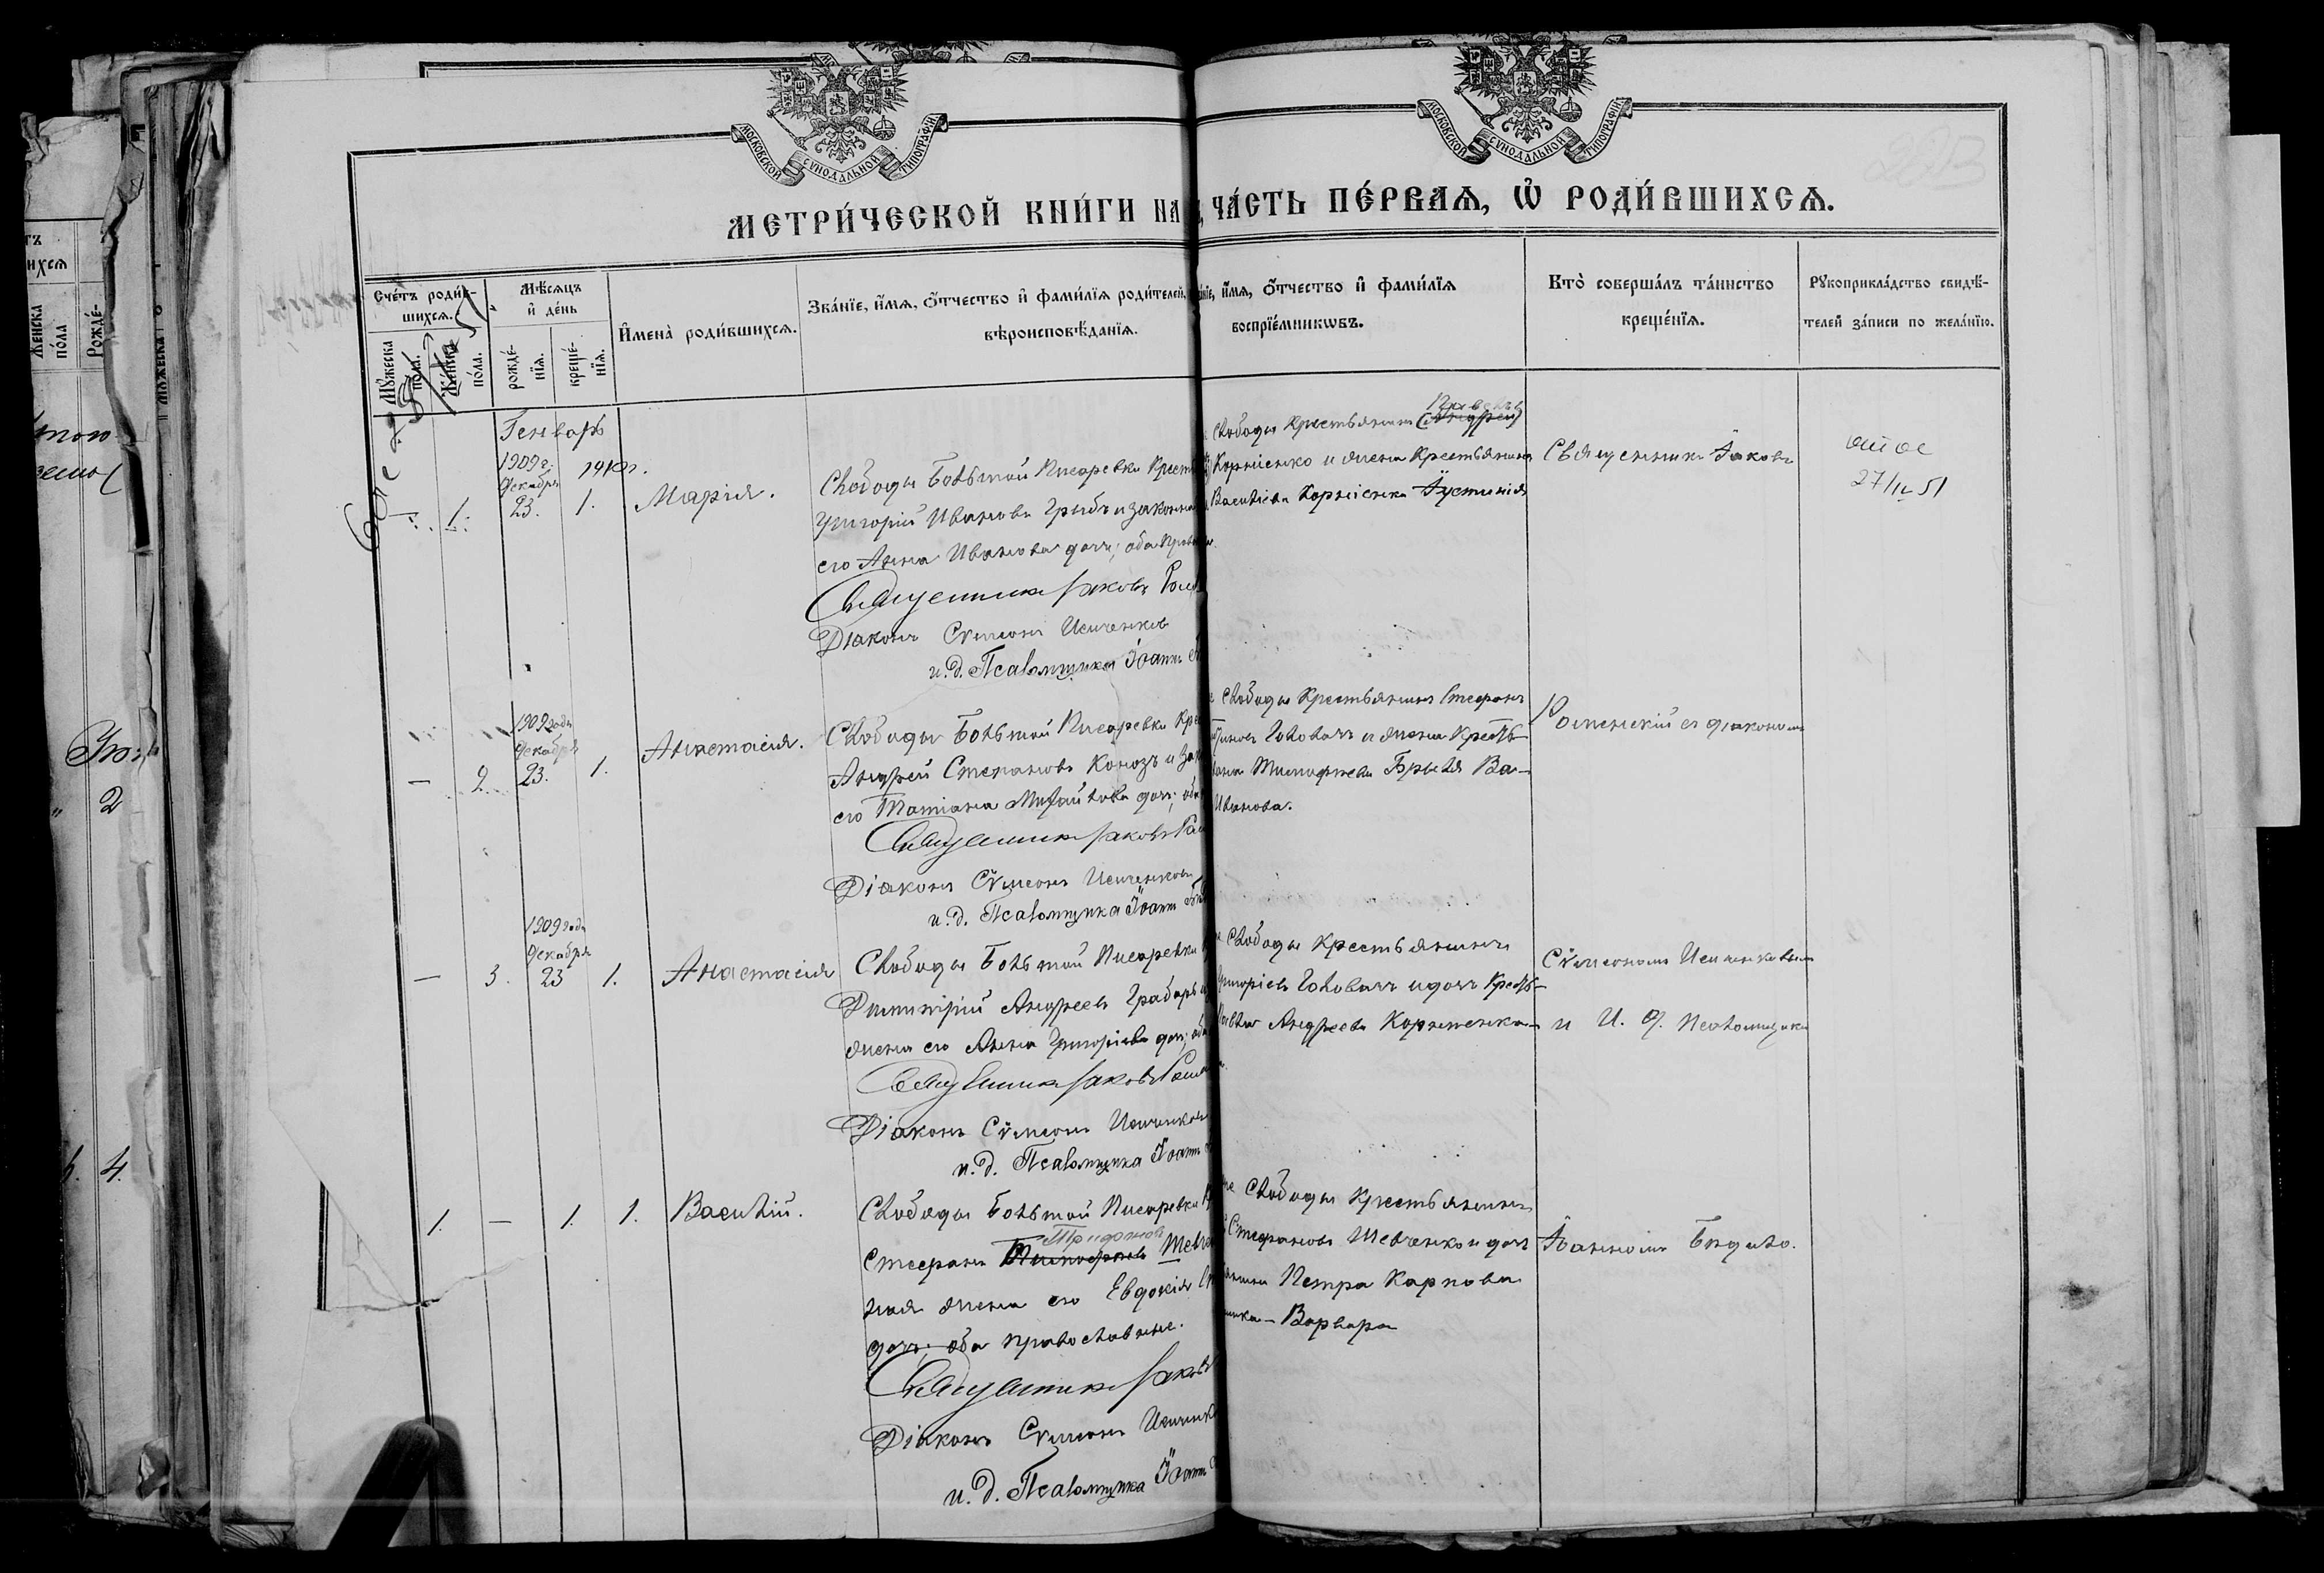 МОСКОВСКОЙ СѴНОДАЛЬНОЙ ТИПОГРАФІИ
МОСКОВСКОЙ СѴНОДАЛЬНОЙ ТИПОГРАФІИ
МЕТРИ́ЧЕСКОЙ КНИ́ГИ НА
ЧА́СТЬ ПЕ́РВАЯ, Ѽ РОДИ́ВШИХСЯ.
Сче́тъ роди́в-
шихся.
Мꙋ́жеска
по́ла.
Же́нска
по́ла.
Мѣ́сяцъ
и҆ де́нь
рожде́-
нїя.
креще́-
нїя.
И҆мена̀ роди́вшихся.
Зва́нїе, и҆́мя, ѻ҆́тчество и҆ фами́лїя роди́телей,
вѣроисповѣ́данїя.
и҆́мя, ѻ҆́тчество и҆ фами́лїя
воспрїе́мникѡвъ.
Кто̀ соверша́лъ та́инство
креще́нїя.
Рꙋкоприкла́дство свидѣ́-
телей за́писи по жела́нїю.
Генварь
1909 г.
Декабря
1910 г.
— 1. 23. 1. Марія.
Слободы Большой Писаревки Крест
Григорій Ивановъ Грибъ и законна
его Анна Иванова дочь; оба Правос
Священникъ Іаковъ Ром
Діаконъ Сѵмеонъ Исиченковъ
и. д. Псаломщика Іоаннъ
Павелъ
Слободы Крестьянинъ (Андрей)
Корніенко и жена Крестьянина
Василіева Корніенка Іустинія
Священникъ Іаковъ
27/IV 51
1909 года
Декабря
— 2. 23. 1. Анастасія.
Слободы Большой Писаревки Кре
Андрей Степановъ Конозъ и зак
его Татіана Михайлова дочь; оба
Священникъ Іаковъ Ром
Діаконъ Сѵмеонъ Исиченковъ
и. д. Псаломщика Іоаннъ
Слободы Крестьянинъ Стефанъ
Головачъ и жена Кресть-
Тимофеева Брыля Ва-
Иванова.
Роменскій съ діакономъ
1909 года
Декабря
— 3. 23 1. Анастасія
Слободы Большой Писаревки
Димитрій Андреевъ Грабарь и
жена его Анна Григоріева дочь; оба
Священникъ Іаковъ Роме
Діаконъ Сѵмеонъ Исиченковъ
и. д. Псаломщика Іоаннъ
Слободы Крестьянинъ
Григоріевъ Головачъ и дочь Кресть-
Андреева Корніенка
Сѵмеономъ Исиченковымъ
и И. д. Псаломщика
1. — 1. 1. Василій.
Слободы Большой Писаревки
Трифоновъ
Стефанъ Тимофеевъ Шевче
ная жена его Евдокія
дочь; оба православные.
Священникъ Іаковъ
Діаконъ Сѵмеонъ Исиченко
и. д. Псаломщика Іоаннъ
Слободы Крестьянинъ
Стефановъ Шевченко и дочь
Петра Карпова
Варвара
Іоанномъ Бѣдило.